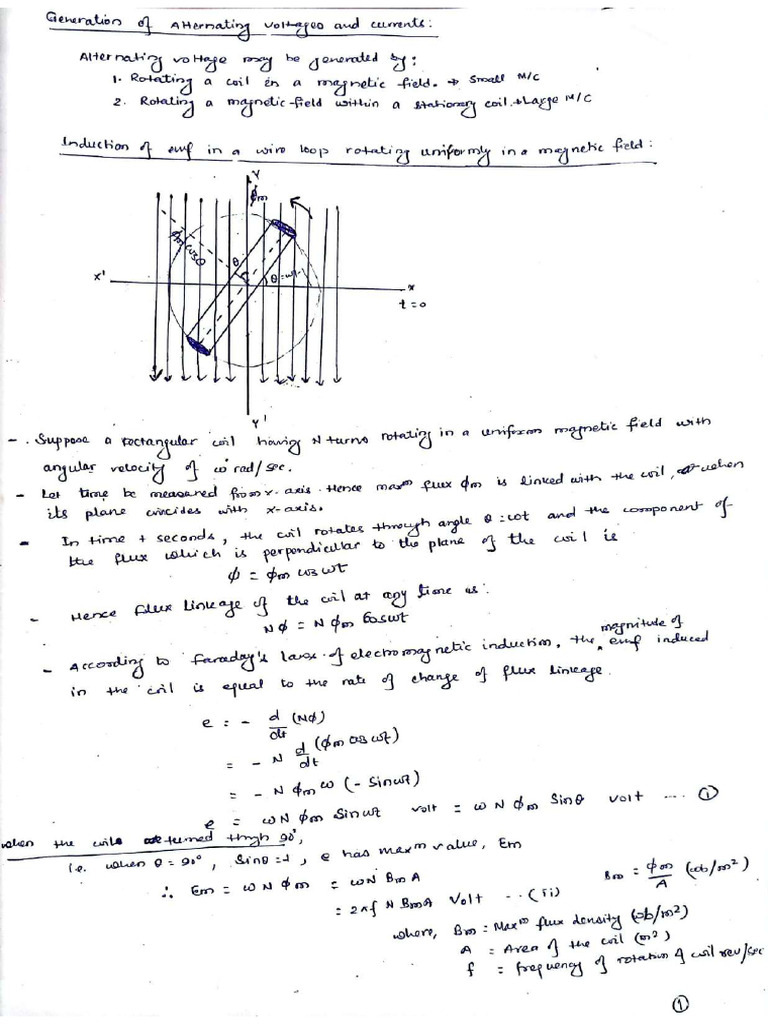 Generation of Alternating voltages and currents:
Alternating voltage may be generated by:
1. Rotating a coil in a magnetic field. → Small M/C
2. Rotating a magnetic field within a stationary coil. → Large M/C
Induction of emf in a wire loop rotating uniformly in a magnetic field:
Y
ϕm
ϕm cosθ
θ
θ=ωt
X'
x
t=0
Y'
- . Suppose a rectangular coil having N turns rotating in a uniform magnetic field with
angular velocity of ω rad/sec.
- Let time be measured from x-axis. Hence maxm flux ϕm is linked with the coil, when
its plane coincides with x-axis.
- In time t seconds, the coil rotates through angle θ=ωt and the component of
the flux which is perpendicular to the plane of the coil is
ϕ = ϕm cos ωt
- Hence flux linkage of the coil at any time is:
Nϕ = N ϕm cosωt
- According to Faraday's laws of electromagnetic induction, the magnitude of emf induced
in the coil is equal to the rate of change of flux linkage.
e = - d/dt (Nϕ)
= - N d/dt (ϕm cos ωt)
= - N ϕm ω (- sinωt)
e = ω N ϕm Sin ωt volt = ω N ϕm Sinθ volt .... (i)
when the coil turned thrgh 90°,
i.e. when θ = 90°, Sinθ=1, e has maxm value, Em
∴ Em = ω N ϕm = ω N Bm A
Bm = ϕm/A (wb/m²)
= 2πf N BmA Volt ... (ii)
where, Bm = Maxm flux density (wb/m²)
A = Area of the coil (m²)
f = frequency of rotation of coil rev/sec
(1)